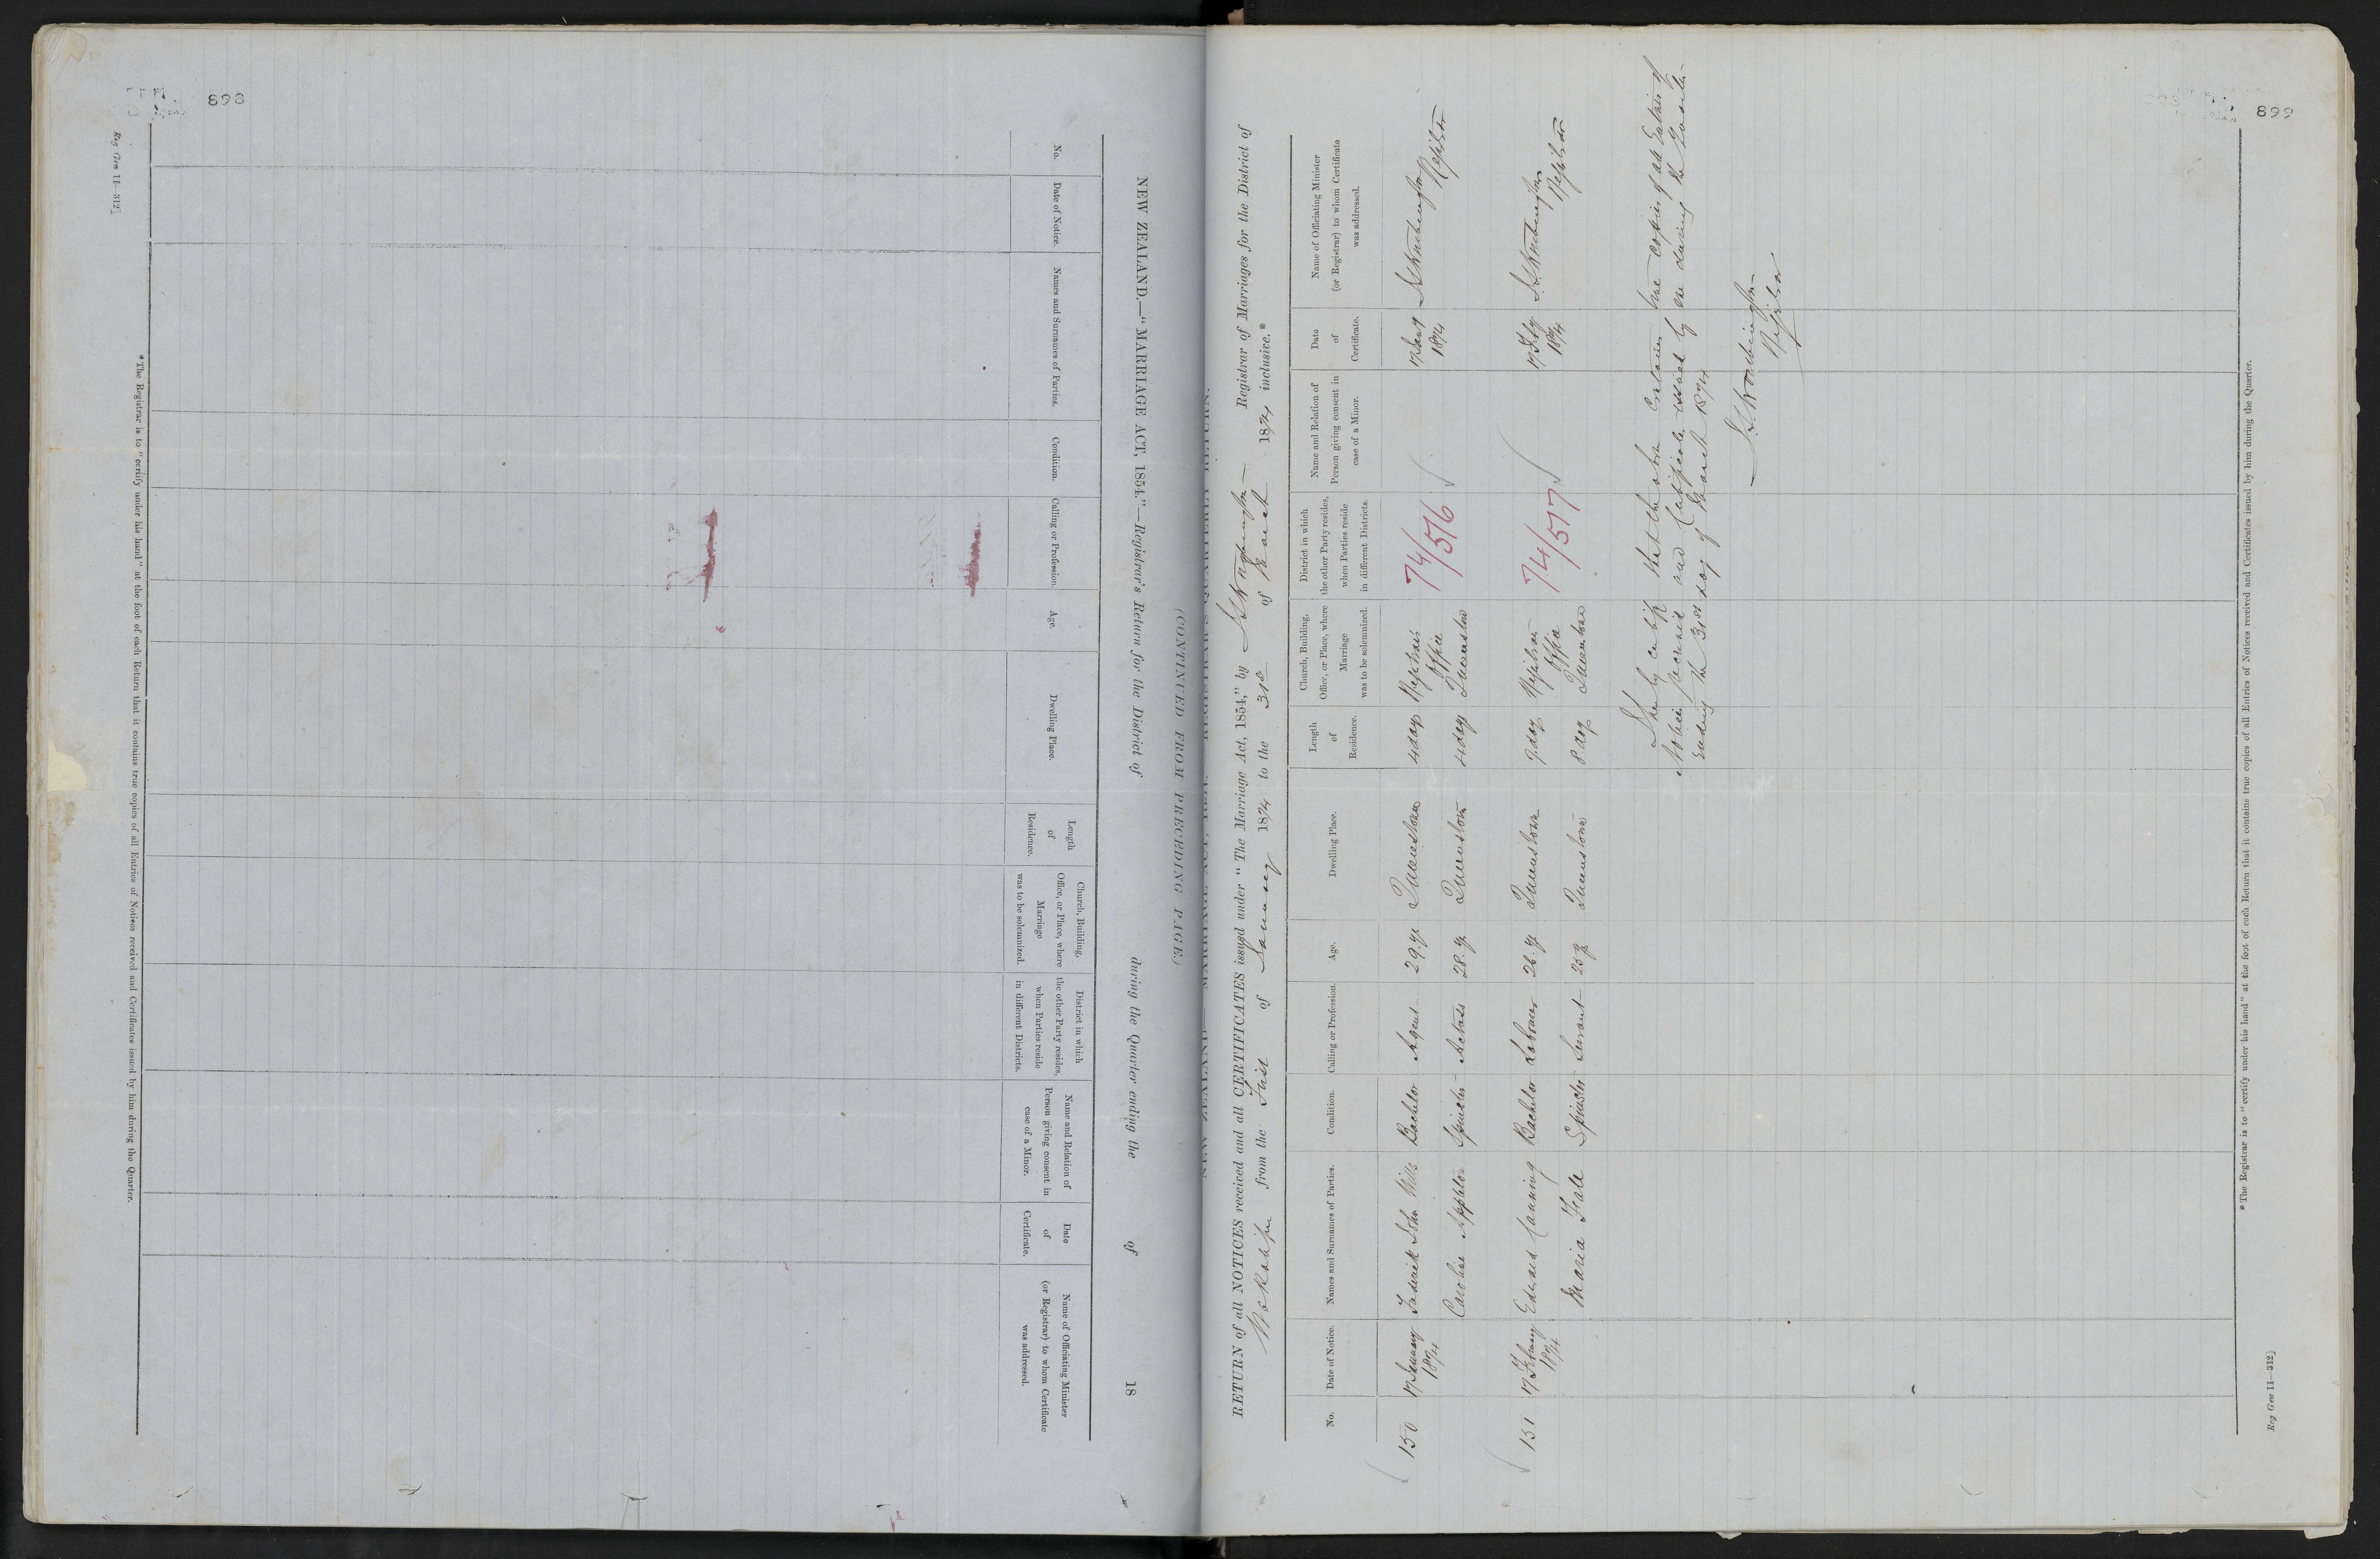 898
Reg Gen 11—312]
NEW ZEALAND.—"MARRIAGE ACT, 1854."—Registrar's Return for the District of during the Quarter ending the of 18
(CONTINUED FROM PRECEDING PAGE.)
No.
Date of Notice.
Names and Surnames of Parties.
Condition.
Calling or Profession.
Age.
Dwelling Place.
Length
of
Residence.
Church, Building,
Office, or Place, where
Marriage
was to be solemnized.
District in which
the other Party resides,
when Parties reside
in different Districts.
Name and Relation of
Person giving consent in
case of a Minor.
Date
of
Certificate.
Name of Officiating Minister
(or Registrar) to whom Certificate
was addressed.
*The Registrar is to "certify under his hand" at the foot of each Return that it contains true copies of all Entries of Notices received and Certificates issued by him during the Quarter.
899
RETURN of all NOTICES received and all CERTIFICATES issued under "The Marriage Act, 1854," by Registrar of Marriages for the District of
Wakatipu from the First of January 1874 to the 31st of March 1874 inclusive.*
No.
Date of Notice.
Names and Surnames of Parties.
Condition.
Calling or Profession.
Age.
Dwelling Place.
Length
of
Residence.
Church, Building,
Office, or Place, where
Marriage
was to be solemnized.
District in which
the other Party resides,
when Parties reside
in different Districts.
Name and Relation of
Person giving consent in
case of a Minor.
Date
of
Certificate.
Name of Officiating Minister
(or Registrar) to whom Certificate
was addressed.
150 17 January 1874 Frederick John Wills Bachelor Agent 29 y Queenstown 4 days Registrars Office Queenstown 74/516 17 Jany 1874 Registrar
Appleton Spinster Actress 28 y Queenstown 4 days
151 17 February 1874 Edward Canning Bachelor Labourer 26 y Queenstown 9 days Registrars Office Queenstown 74/517 17 Feby 1874 Registrar
Maria Spinster Servant 25 y Queenstown 8 days
I hereby certify that the above contains true copies of all Entries of
Notices received and Certificates issued by me during the Quarter
ending the 31st day of March 1874
Registrar
*The Registrar is to "certify under his hand" at the foot of each Return that it contains true copies of all Entries of Notices received and Certificates issued by him during the Quarter.
Reg Gen 11—312]